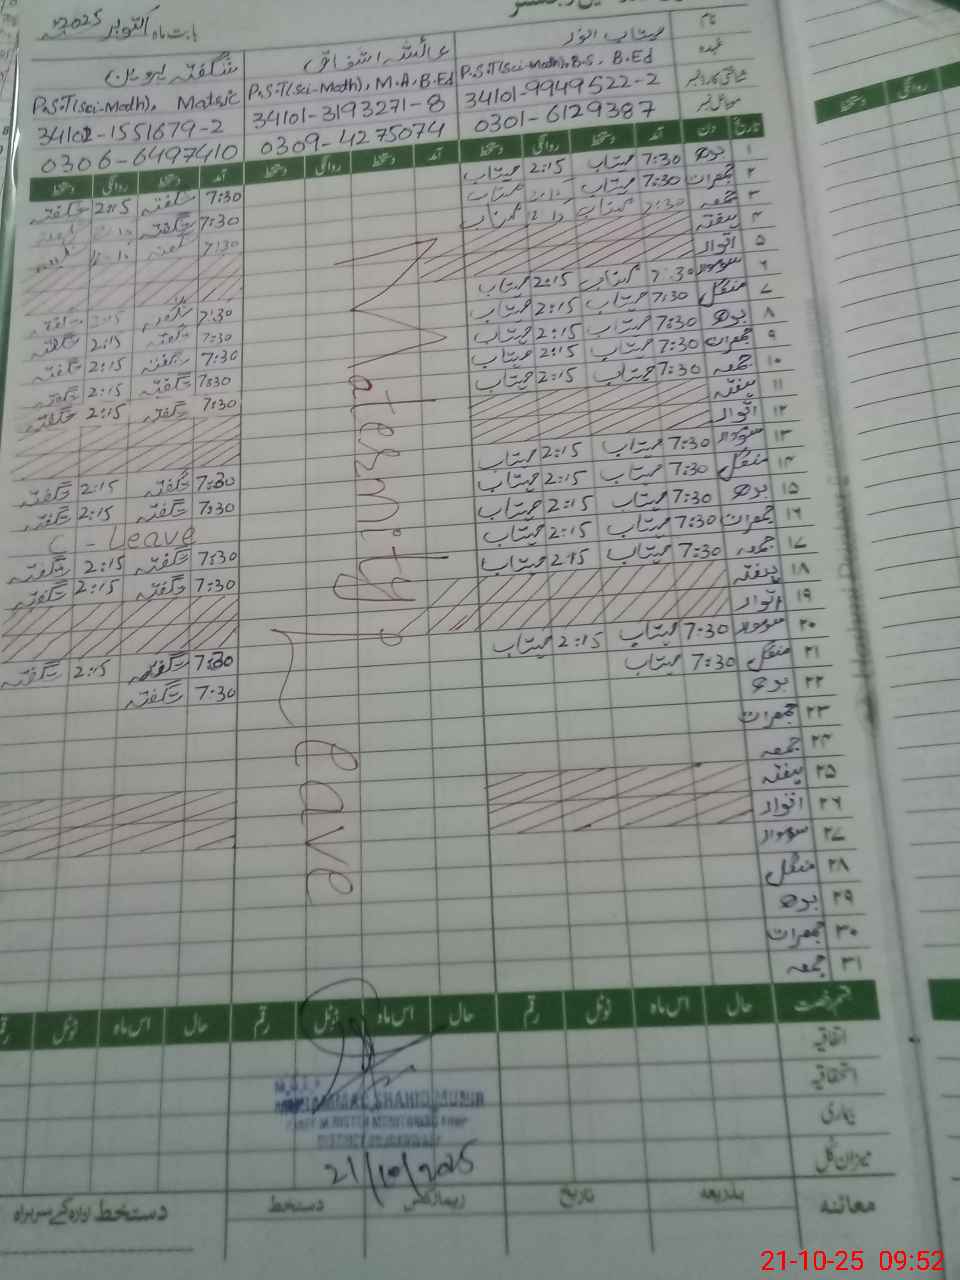 بابت ماہ اکتوبر 2025
نام
مہتاب انور
عائشہ اشفاق
شگفتہ پروین
عہدہ
P.S.T(Sci-Math), B.S, B.Ed
P.S.T(Sci-Math), M.A, B.Ed
P.S.T(Sci-Math), Matric
شناختی کارڈ نمبر
34101-9949522-2
34101-3193271-8
34102-1551679-2
موبائل نمبر
0301-6129387
0309-4275074
0306-6497410
تاریخ دن آمد دستخط روانگی دستخط آمد دستخط روانگی دستخط آمد دستخط روانگی دستخط
۱ بدھ 7:30 مہتاب 2:15 مہتاب 7:30 شگفتہ 2:15 شگفتہ
۲ جمعرات 7:30 مہتاب 2:15 مہتاب 7:30 شگفتہ
۳ جمعہ 7:30 مہتاب 2:15 مہتاب 7:30 شگفتہ
۴ ہفتہ
۵ اتوار
۶ سوموار 7:30 مہتاب 2:15 مہتاب 7:30 شگفتہ 2:15 شگفتہ
۷ منگل 7:30 مہتاب 2:15 مہتاب 7:30 شگفتہ 2:15 شگفتہ
۸ بدھ 7:30 مہتاب 2:15 مہتاب 7:30 شگفتہ 2:15 شگفتہ
۹ جمعرات 7:30 مہتاب 2:15 مہتاب 7:30 شگفتہ 2:15 شگفتہ
۱۰ جمعہ 7:30 مہتاب 2:15 مہتاب 7:30 شگفتہ 2:15 شگفتہ
۱۱ ہفتہ
۱۲ اتوار
۱۳ سوموار 7:30 مہتاب 2:15 مہتاب 7:30 شگفتہ 2:15 شگفتہ
۱۴ منگل 7:30 مہتاب 2:15 مہتاب 7:30 شگفتہ 2:15 شگفتہ
۱۵ بدھ 7:30 مہتاب 2:15 مہتاب C - Leave
۱۶ جمعرات 7:30 مہتاب 2:15 مہتاب 7:30 شگفتہ 2:15 شگفتہ
۱۷ جمعہ 7:30 مہتاب 2:15 مہتاب 7:30 شگفتہ 2:15 شگفتہ
۱۸ ہفتہ
۱۹ اتوار
۲۰ سوموار 7:30 مہتاب 2:15 مہتاب 7:30 شگفتہ 2:15 شگفتہ
۲۱ منگل 7:30 مہتاب 7:30 شگفتہ
۲۲ بدھ
۲۳ جمعرات
۲۴ جمعہ
۲۵ ہفتہ
۲۶ اتوار
۲۷ سوموار
۲۸ منگل
۲۹ بدھ
۳۰ جمعرات
۳۱ جمعہ
Maternity Leave
قسم رخصت حال اس ماہ ٹوٹل رقم حال اس ماہ ٹوٹل رقم حال اس ماہ ٹوٹل
اتفاقیہ
استحقاقیہ
بیماری
میزان کل
SHAHID MUNIR
21/10/2025
معائنہ بذریعہ تاریخ ریمارکس دستخط دستخط ادارہ کے سربراہ
دستخط روانگی
21-10-25 09:52